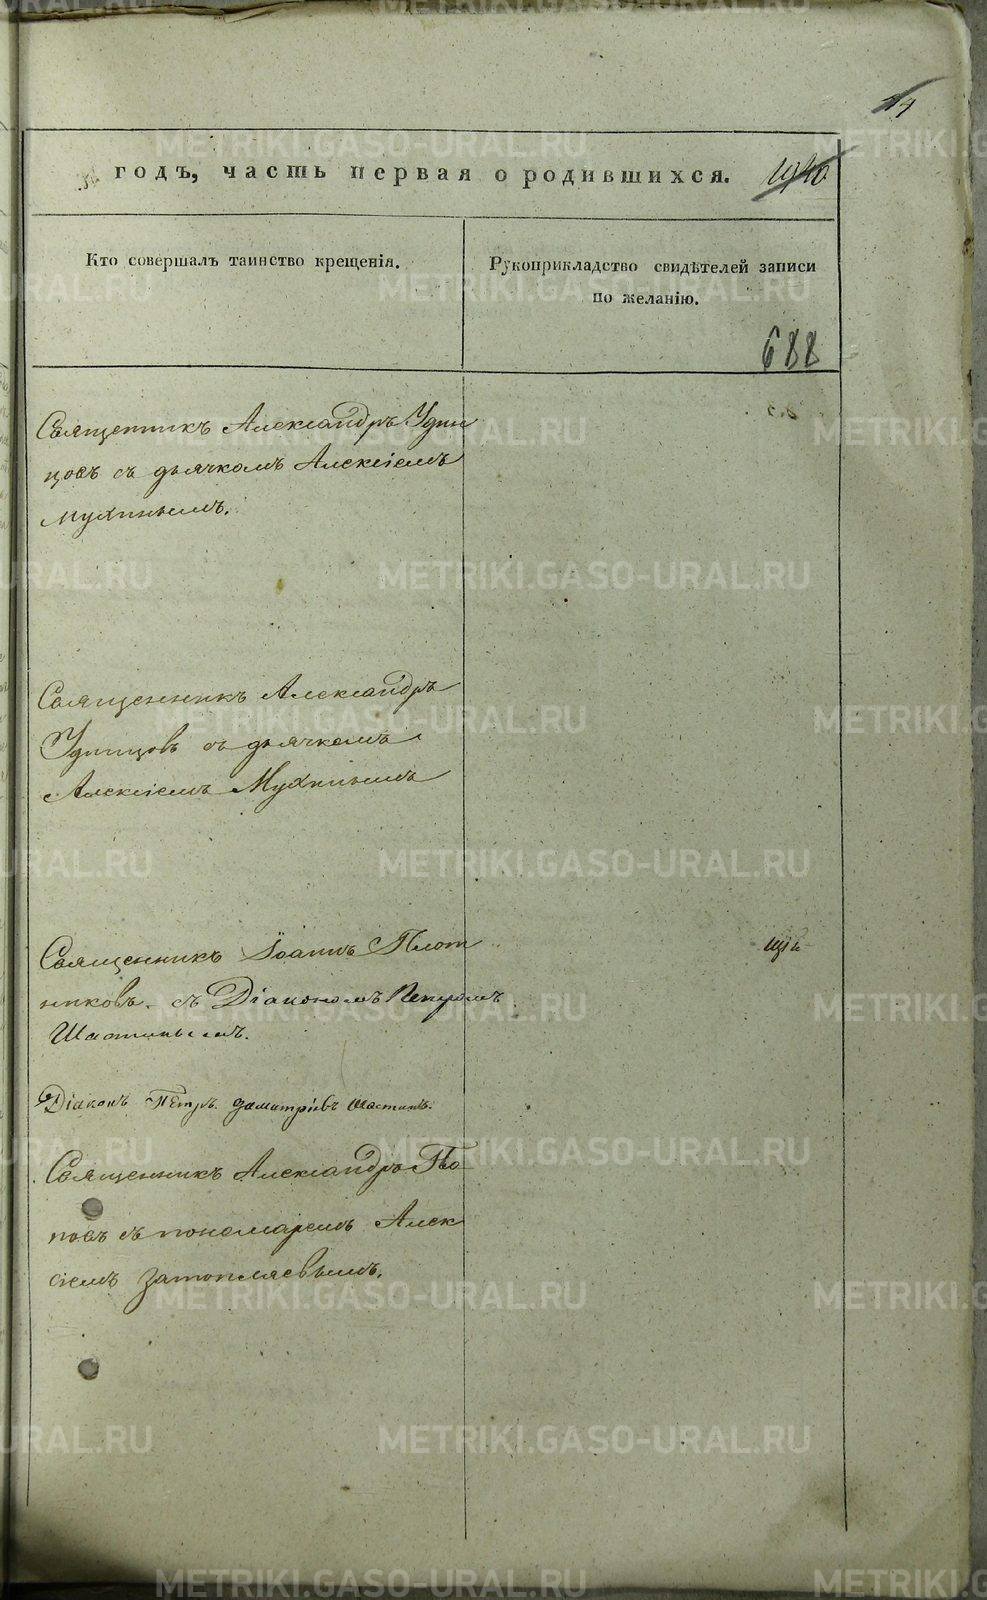 годъ, часть первая о родившихся.
Кто совершалъ таинство крещенія.
Рукоприкладство свидѣтелей записи
по желанію.
688
Священникъ Александръ Удин
цовъ съ дьячкомъ Алексіемъ
Мухинымъ.
Священникъ Александръ
Удинцовъ съ дьячкомъ
Алексіемъ Мухинымъ
Священникъ Іоаннъ Плот
никовъ. съ Діакономъ Петромъ
Шастинымъ.
Діаконъ Петръ Димитріевъ Шастинъ.
Священникъ Александръ По
повъ съ пономаремъ Алек
сіемъ Затопляевымъ.
METRIKI.GASO-URAL.RU